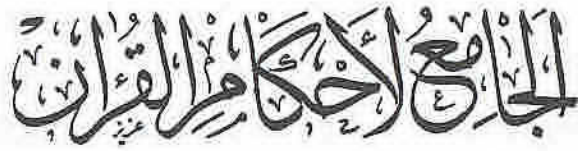 الجَامِعُ لِأَحْكَامِ الْقُرْآنِ
عزيز